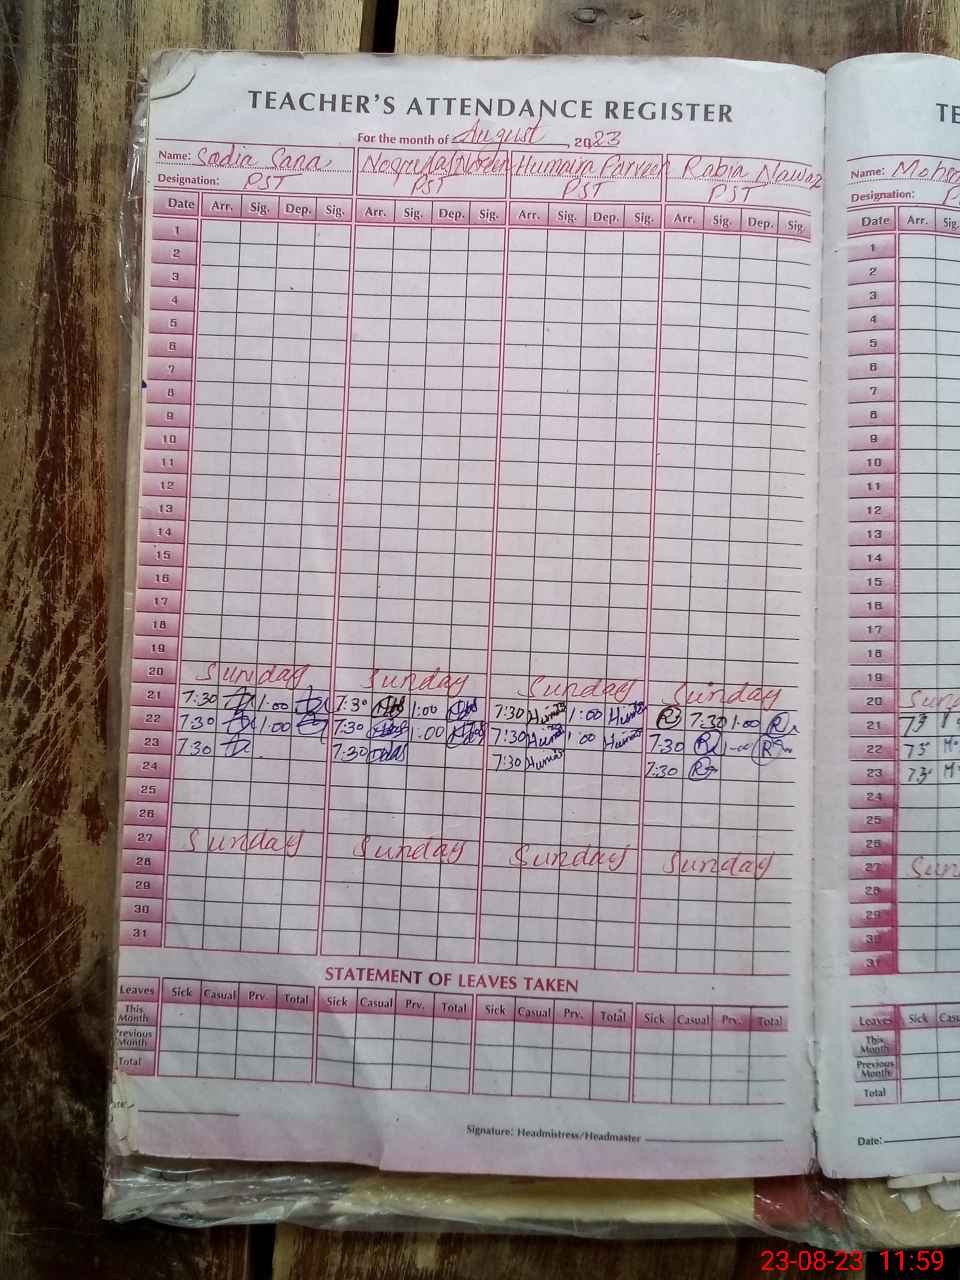 TEACHER'S ATTENDANCE REGISTER
For the month of August, 2023
Name: Sadia Sana Humaira Parveen Rabia Nawaz
Designation: PST PST PST PST
Date Arr. Sig. Dep. Sig. Arr. Sig. Dep. Sig. Arr. Sig. Dep. Sig. Arr. Sig. Dep. Sig.
1
2
3
4
5
6
7
8
9
10
11
12
13
14
15
16
17
18
19
20 Sunday Sunday Sunday Sunday
21 7:30 1:00 7:30 1:00 7:30 1:00 7:30 1:00
22 7:30 1:00 7:30 1:00 7:30 1:00 7:30 1:00
23 7:30 7:30 7:30 7:30
24
25
26
27 Sunday Sunday Sunday Sunday
28
29
30
31
STATEMENT OF LEAVES TAKEN
Leaves Sick Casual Prv. Total Sick Casual Prv. Total Sick Casual Prv. Total Sick Casual Prv. Total
This Month
Previous Month
Total
Signature: Headmistress/Headmaster
Name:
Designation:
Date Arr. Sig.
1
2
3
4
5
6
7
8
9
10
11
12
13
14
15
16
17
18
19
20
21
22
23
24
25
26
27
28
29
30
31
Leaves Sick
This Month
Previous Month
Total
Date:
23-08-23 11:59